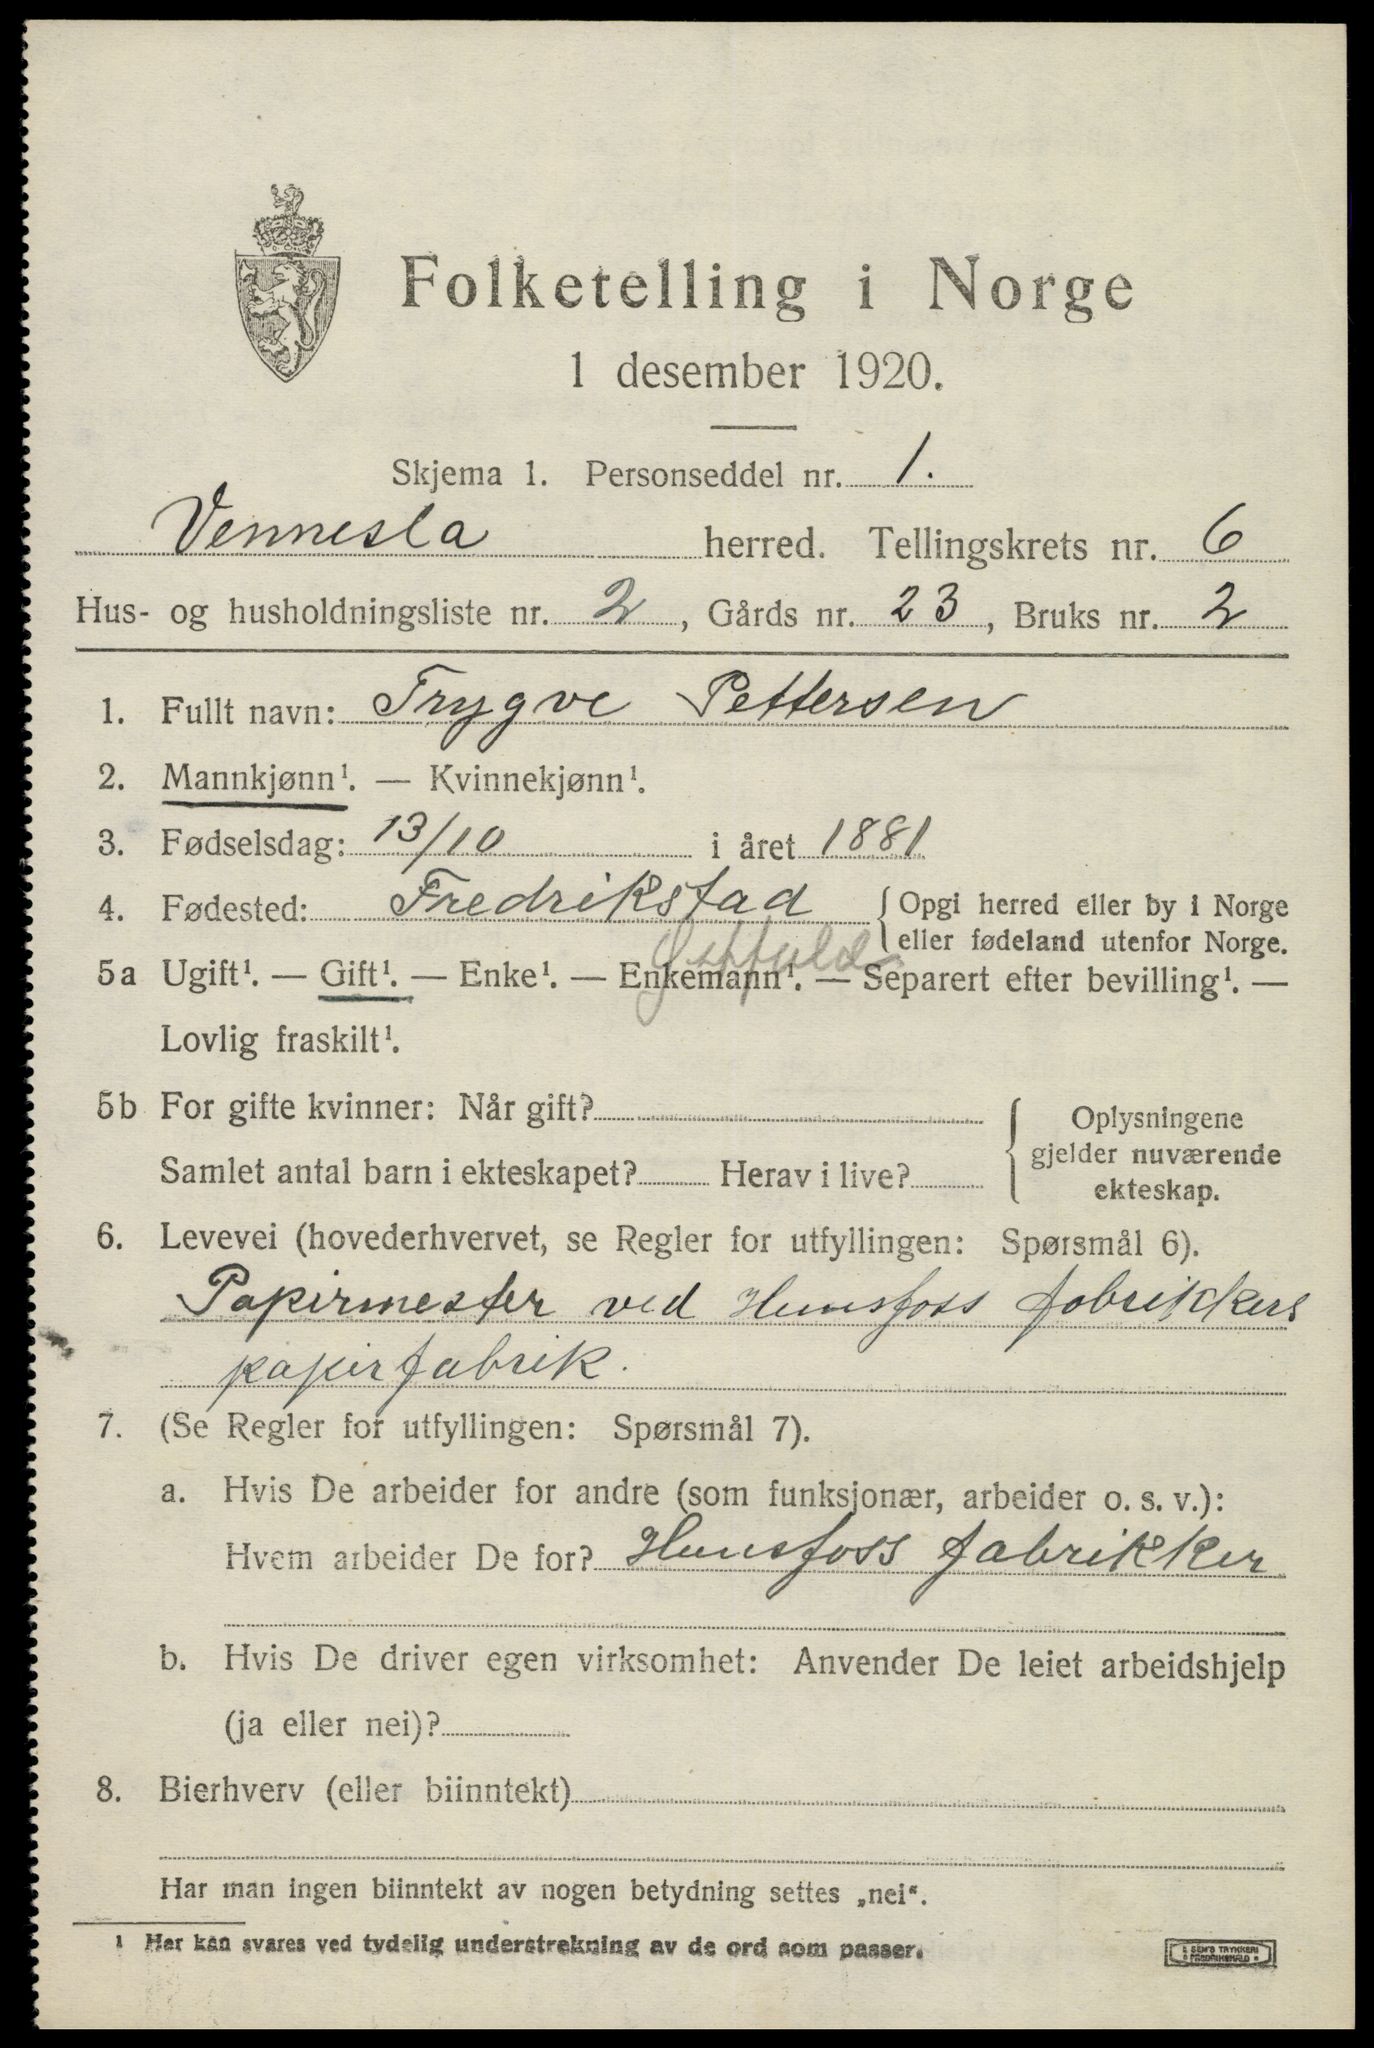 Folketelling i Norge
1 desember 1920.
Skjema 1. Personseddel nr. 1.
Vennesla herred. Tellingskrets nr. 6
Hus- og husholdningsliste nr. 2, Gårds nr. 23, Bruks nr. 2
1. Fullt navn: Trygve Pettersen
2. Mannkjønn¹. — Kvinnekjønn¹.
3. Fødselsdag: 13/10 i året 1881
4. Fødested: Fredrikstad { Opgi herred eller by i Norge
eller fødeland utenfor Norge.
Østfold
5a Ugift¹. — Gift¹. — Enke¹. — Enkemann¹. — Separert efter bevilling¹. —
Lovlig fraskilt¹.
5b For gifte kvinner: Når gift?
Samlet antal barn i ekteskapet? Herav i live?
{ Oplysningene
gjelder nuværende
ekteskap.
6. Levevei (hovederhvervet, se Regler for utfyllingen: Spørsmål 6).
Papirmester ved Hunsfoss fabrikkers
papirfabrik.
7. (Se Regler for utfyllingen: Spørsmål 7).
a. Hvis De arbeider for andre (som funksjonær, arbeider o. s. v.):
Hvem arbeider De for? Hunsfoss fabrikker
b. Hvis De driver egen virksomhet: Anvender De leiet arbeidshjelp
(ja eller nei)?
8. Bierhverv (eller biinntekt)
Har man ingen biinntekt av nogen betydning settes „nei“.
1 Her kan svares ved tydelig understrekning av de ord som passer.
SEM'S TRYKKERI
FREDRIKSHALD